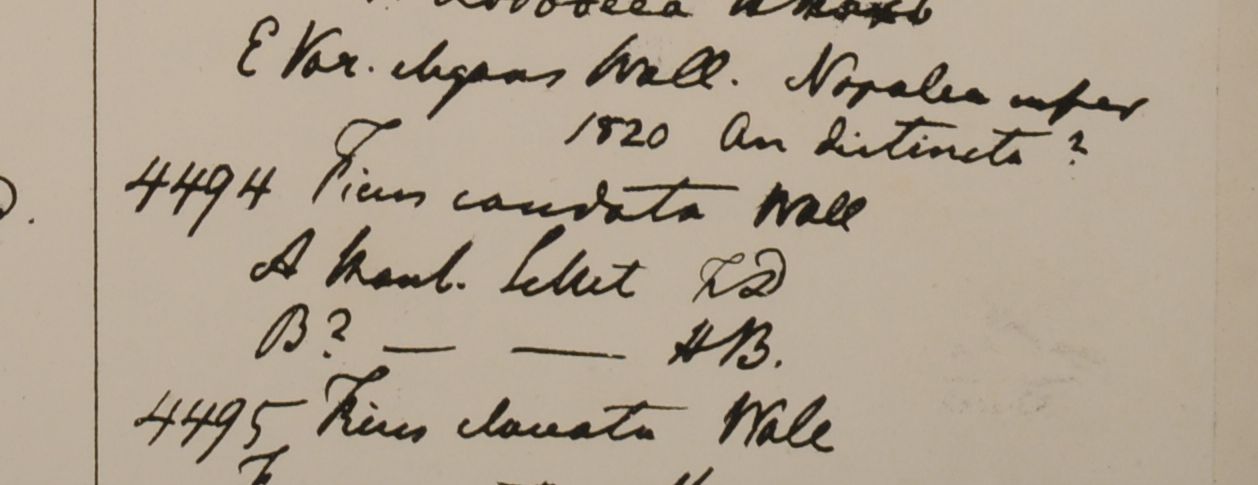 E Var. elegans Wall. Napalia
1820 An distincta ?
4494 Ficus caudata Wall
A Mont. Sillet FD
B? — — HB.
4495 Ficus clavata Wall